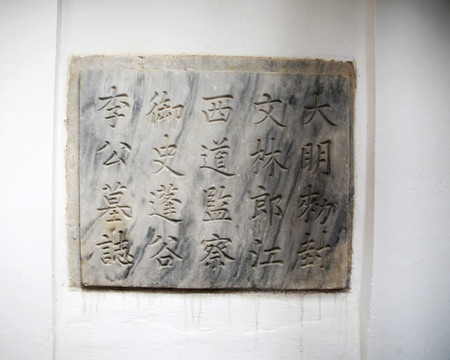 大明勑封
文林郎江
西道監察
御史蓬谷
李公墓誌